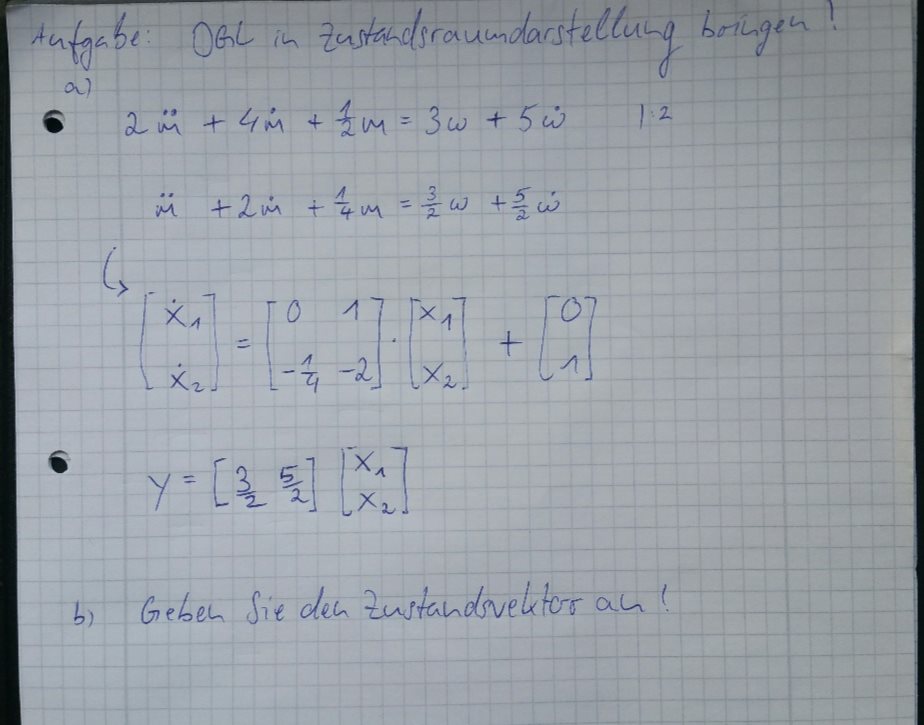 Aufgabe: DGL in Zustandsraumdarstellung bringen!
a)
2m̈ + 4ṁ + 1/2 m = 3ω + 5ω̇ |:2
m̈ + 2ṁ + 1/4 m = 3/2 ω + 5/2 ω̇
↳ [ẋ1 ẋ2] = [0 1 -1/4 -2] · [x1 x2] + [0 1]
y = [3/2 5/2] [x1 x2]
b) Geben Sie den Zustandsvektor an!